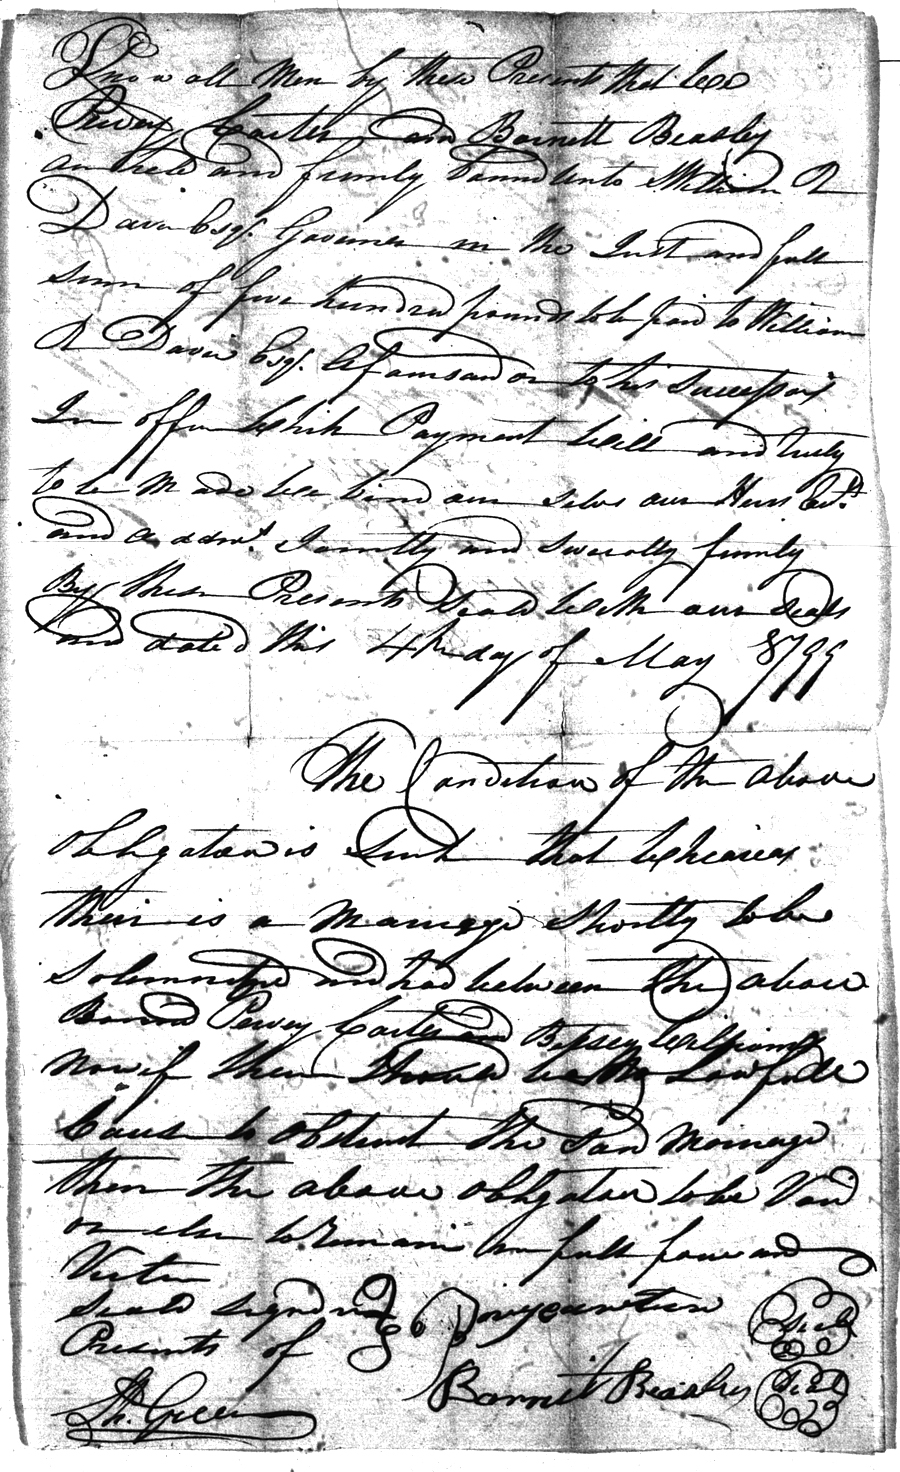 Know all Men by these Presents that we
Pervey Carter and Barnett Beasley
are held and firmly bound unto William R
Davie Esqr. Governer in the Just and full
sum of five hundred pounds to be paid to William
R Davie Esqr. afouresaid or to his Successors
In office which Payment will and truly
to be Made we bind our selvs our Heirs Exrs.
and admrs. Jointly and severally firmly
By these Presents Seald with our Seals
and dated this 4th day of May 1799
The Condition of the above
obligation is Such that whereas
their is a Marriage Shortly to be
Solemnized and had between the above
Bound Pervey Carter and Betsey Williams
Now if there should be no Lawfull
Cause to obstruct the Said Marriage
then the above obligation to be Void
or else to Remain in full force and
Virtue
Seald signd in
Presents of
Pervy Carter Seal
Barnet Beasley Seal
Th. Green